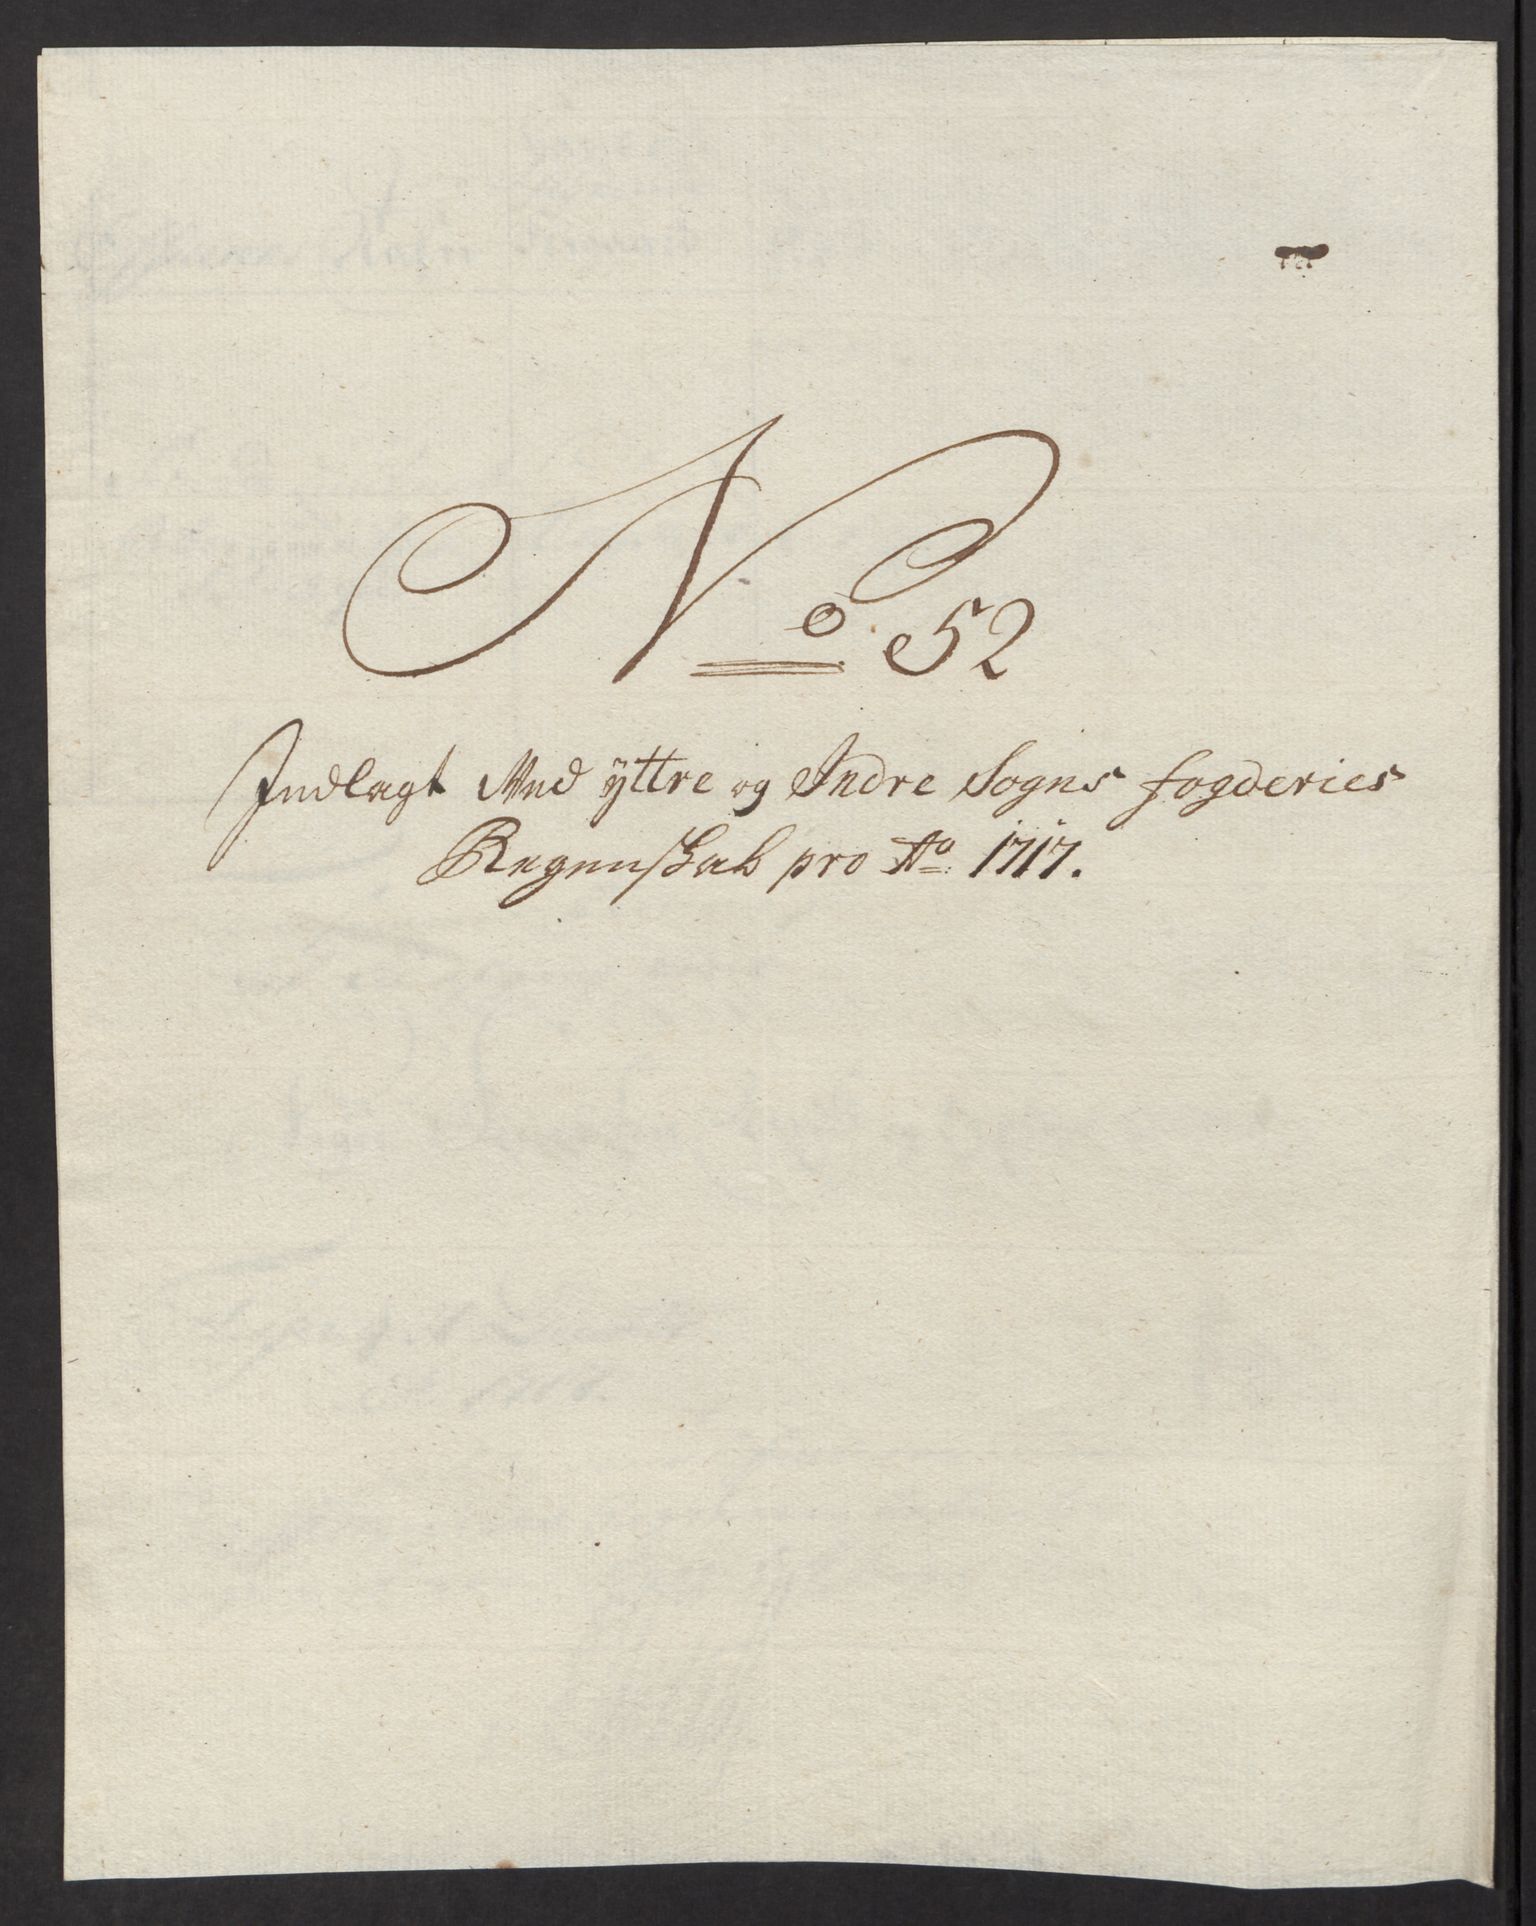 No 52
Indlagt Med ÿttre og Indre Sogns fogderies
Regenskab pro Ao 1717.